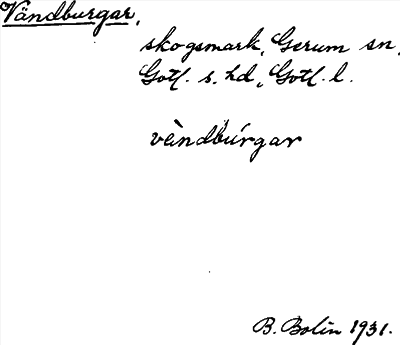 Vändburgar,
skogsmark, Gerum sn,
Gotl. s. hd, Gotl. l.
vä̀ndbúrgar
B. Bolin 1931.